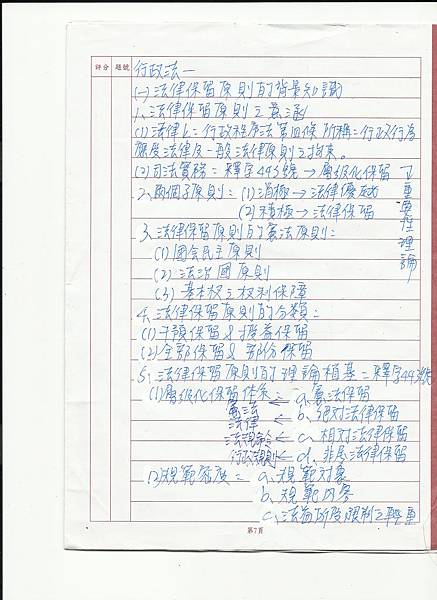 評分 題號
行政法一
(一)法律保留原則的背景知識
1、法律保留原則之意涵
(1)法律上=行政程序法第四條所稱=行政行為
應受法律及一般法律原則之拘束。
(2)司法實務=釋字443號→層級化保留
重要性理論
2、兩個子原則=(1)消極→法律優效
(2)積極→法律保留
3、法律保留原則的憲法原則:
(1)國會民主原則
(2)法治國原則
(3)基本權之權利保障
4、法律保留原則的分類:
(1)干預保留&授益保留
(2)全部保留&部份保留
5、法律保留原則的理論根基=釋字443號
(1)層級化保留体系= a、憲法保留
憲法← b、絕對法律保留
法律← c、相對法律保留
法規命令
行政規則← d、非屬法律保留
(2)規範密度= a、規範對象
b、規範內容
c、法益所受限制之輕重
第7頁